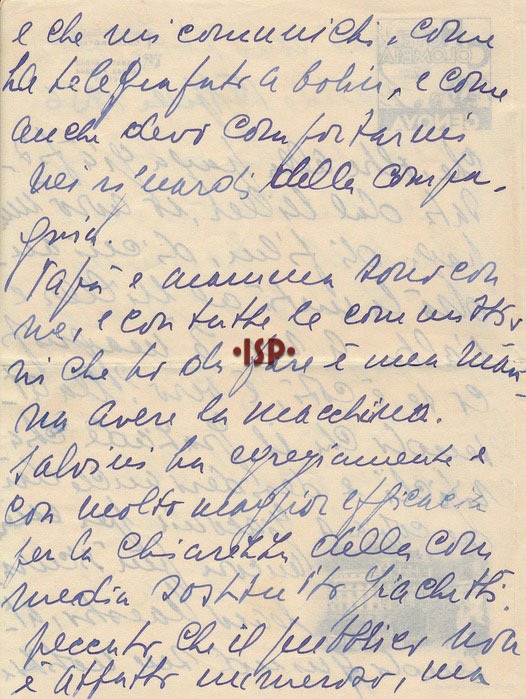 e che mi comunichi, come
ha telegrafato a bohn, e come
anche devo comportarmi
nei riguardi della compa-
gnia.
Papà e mamma sono con
me, e con tutte le commissio
ni che ho da fare è una man-
na avere la macchina.
Salvini ha egregiamente e
con molto maggior efficacia
per la chiarezza della com
media sostituito Giachetti.
peccato che il pubblico non
è affatto numeroso, ma
·ISP·
COLOMBIA
GENOVA